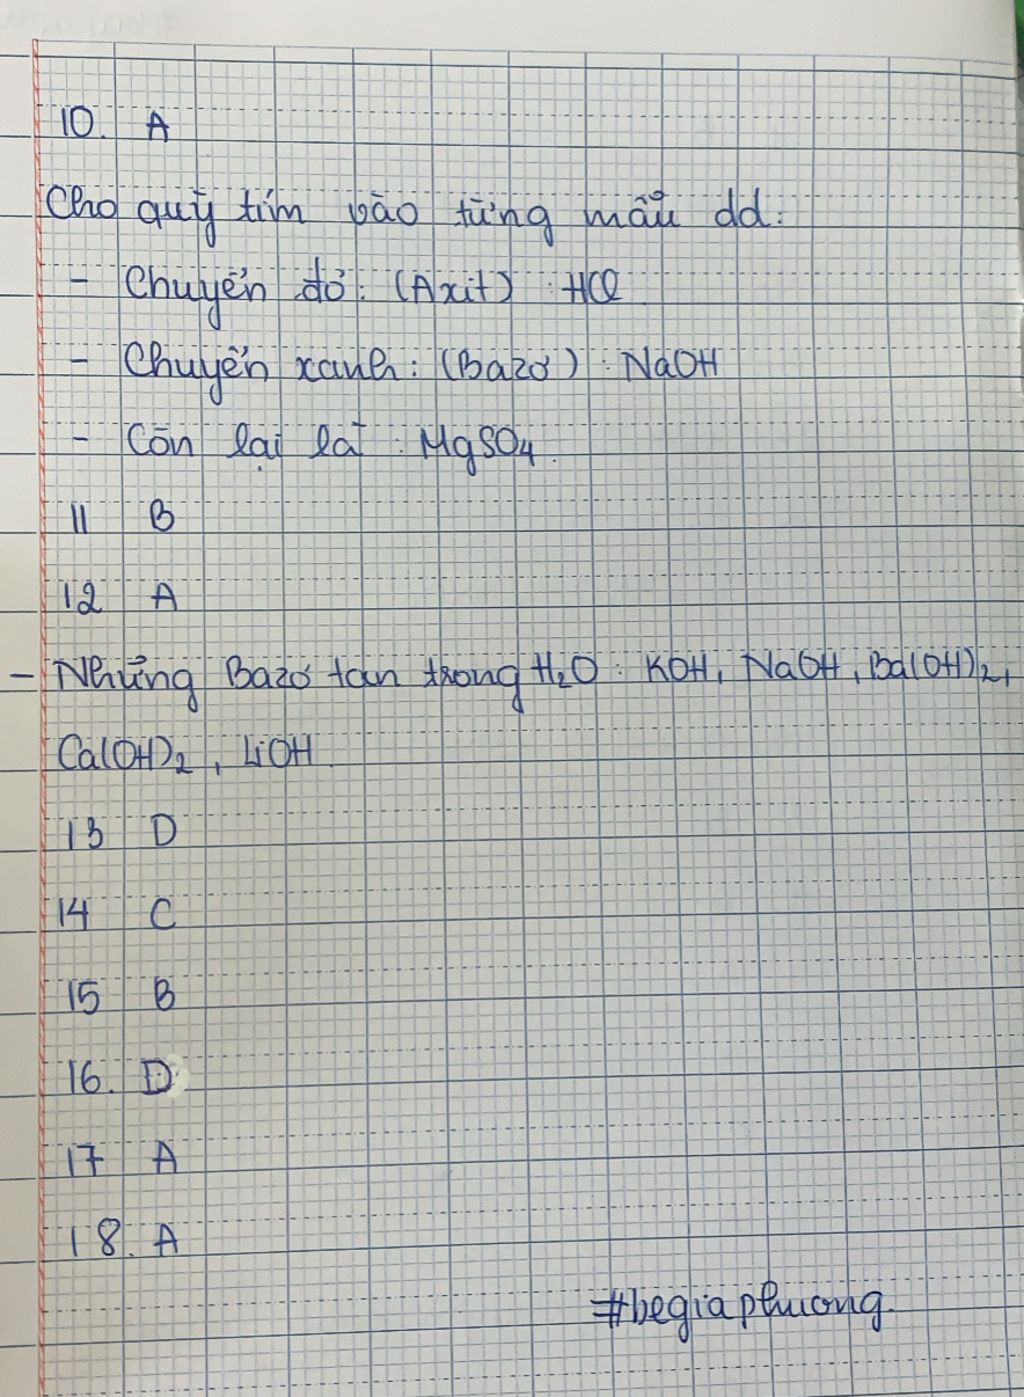 10. A
Cho quỳ tím vào từng mẫu dd:
- Chuyển đỏ: (Axit): HCl
- Chuyển xanh: (Bazơ): NaOH
- Còn lại là: MgSO4.
11 B
12 A
- Những Bazơ tan trong H2O: KOH, NaOH, Ba(OH)2,
Ca(OH)2, LiOH
13 D
14 C
15 B
16. D
17 A
18. A
#begiaphuong.